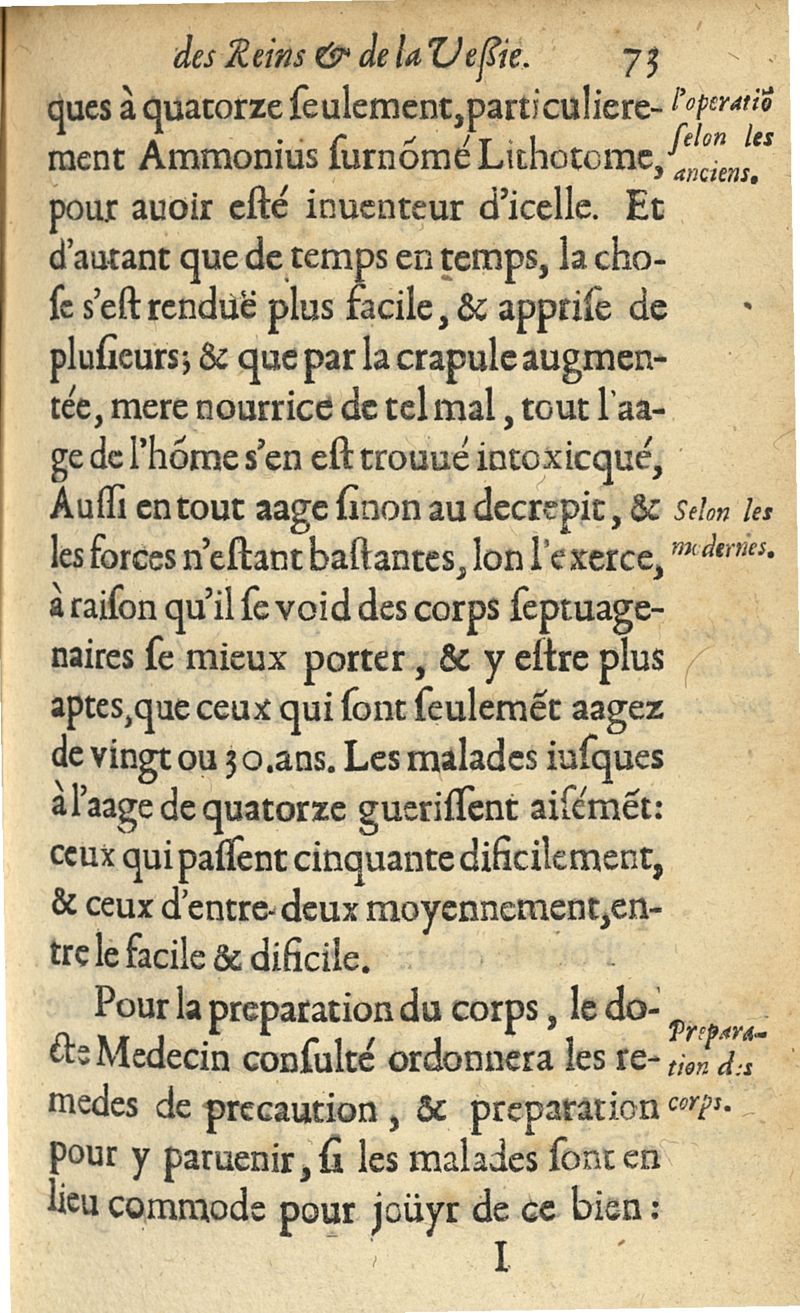 des Reins & de la Veßie. 73
ques à quatorze ſeulement, particuliere-
ment Ammonius ſurnõmé Lithotome,
pour auoir eſté inuenteur d'icelle. Et
d'autant que de temps en temps, la cho-
ſe s'eſt renduë plus facile, & appriſe de
pluſieurs; & que par la crapule augmen-
tée, mere nourrice de tel mal, tout l'aa-
ge de l'hõme s'en eſt trouué intoxicqué,
Auſſi en tout aage ſinon au decrepit, &
les forces n'eſtant baſtantes, lon l'exerce,
à raiſon qu'il ſe void des corps ſeptuage-
naires ſe mieux porter, & y eſtre plus
aptes, que ceux qui ſont ſeulemẽt aagez
de vingt ou 30. ans. Les malades iuſques
à l'aage de quatorze gueriſſent aiſémẽt:
ceux qui paſſent cinquante dificilement,
& ceux d'entre-deux moyennement, en-
tre le facile & dificile.
Pour la preparation du corps, le do-
cte Medecin conſulté ordonnera les re-
medes de precaution, & preparation
pour y paruenir, ſi les malades ſont en
lieu commode pour joüyr de ce bien:
I
l'operatiõ
ſelon les
anciens.
Selon les
modernes.
Prepara-
tion des
corps.